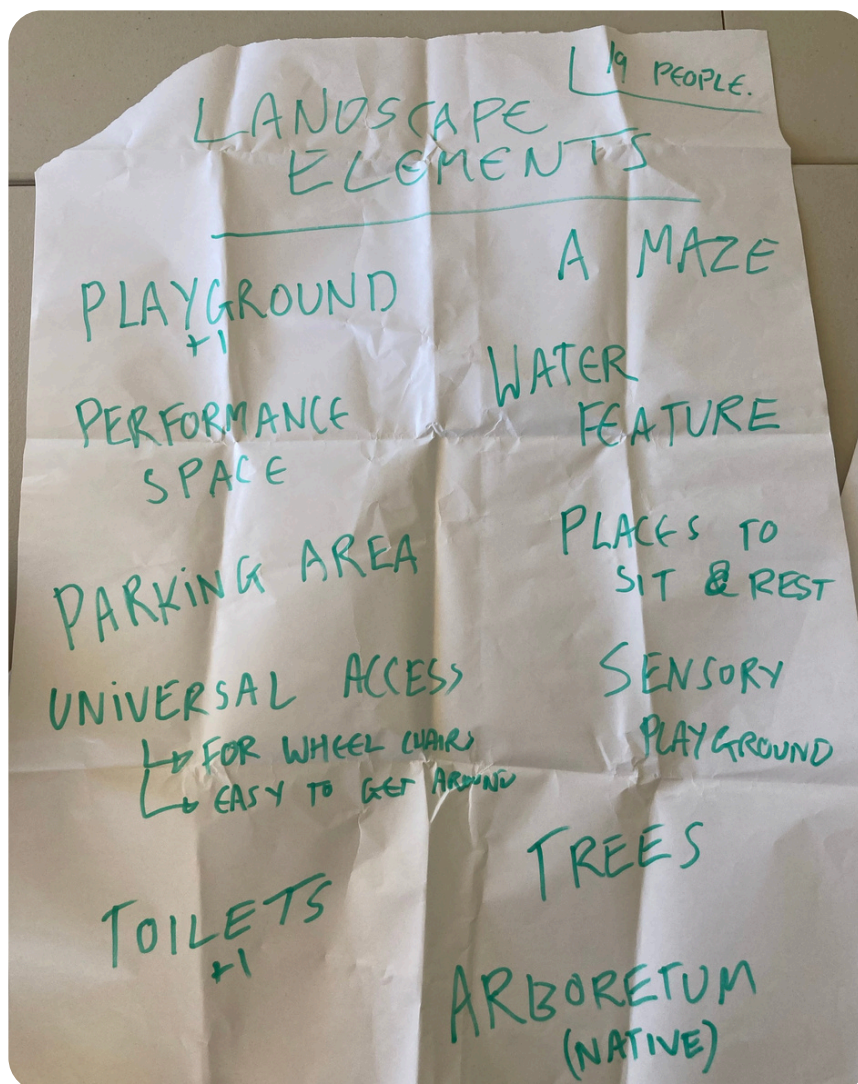 19 PEOPLE.
LANDSCAPE
ELEMENTS
PLAYGROUND
+1
PERFORMANCE
SPACE
PARKING AREA
UNIVERSAL ACCESS
↳ FOR WHEEL CHAIRS
↳ EASY TO GET AROUND
TOILETS
+1
A MAZE
WATER
FEATURE
PLACES TO
SIT & REST
SENSORY
PLAYGROUND
TREES
ARBORETUM
(NATIVE)